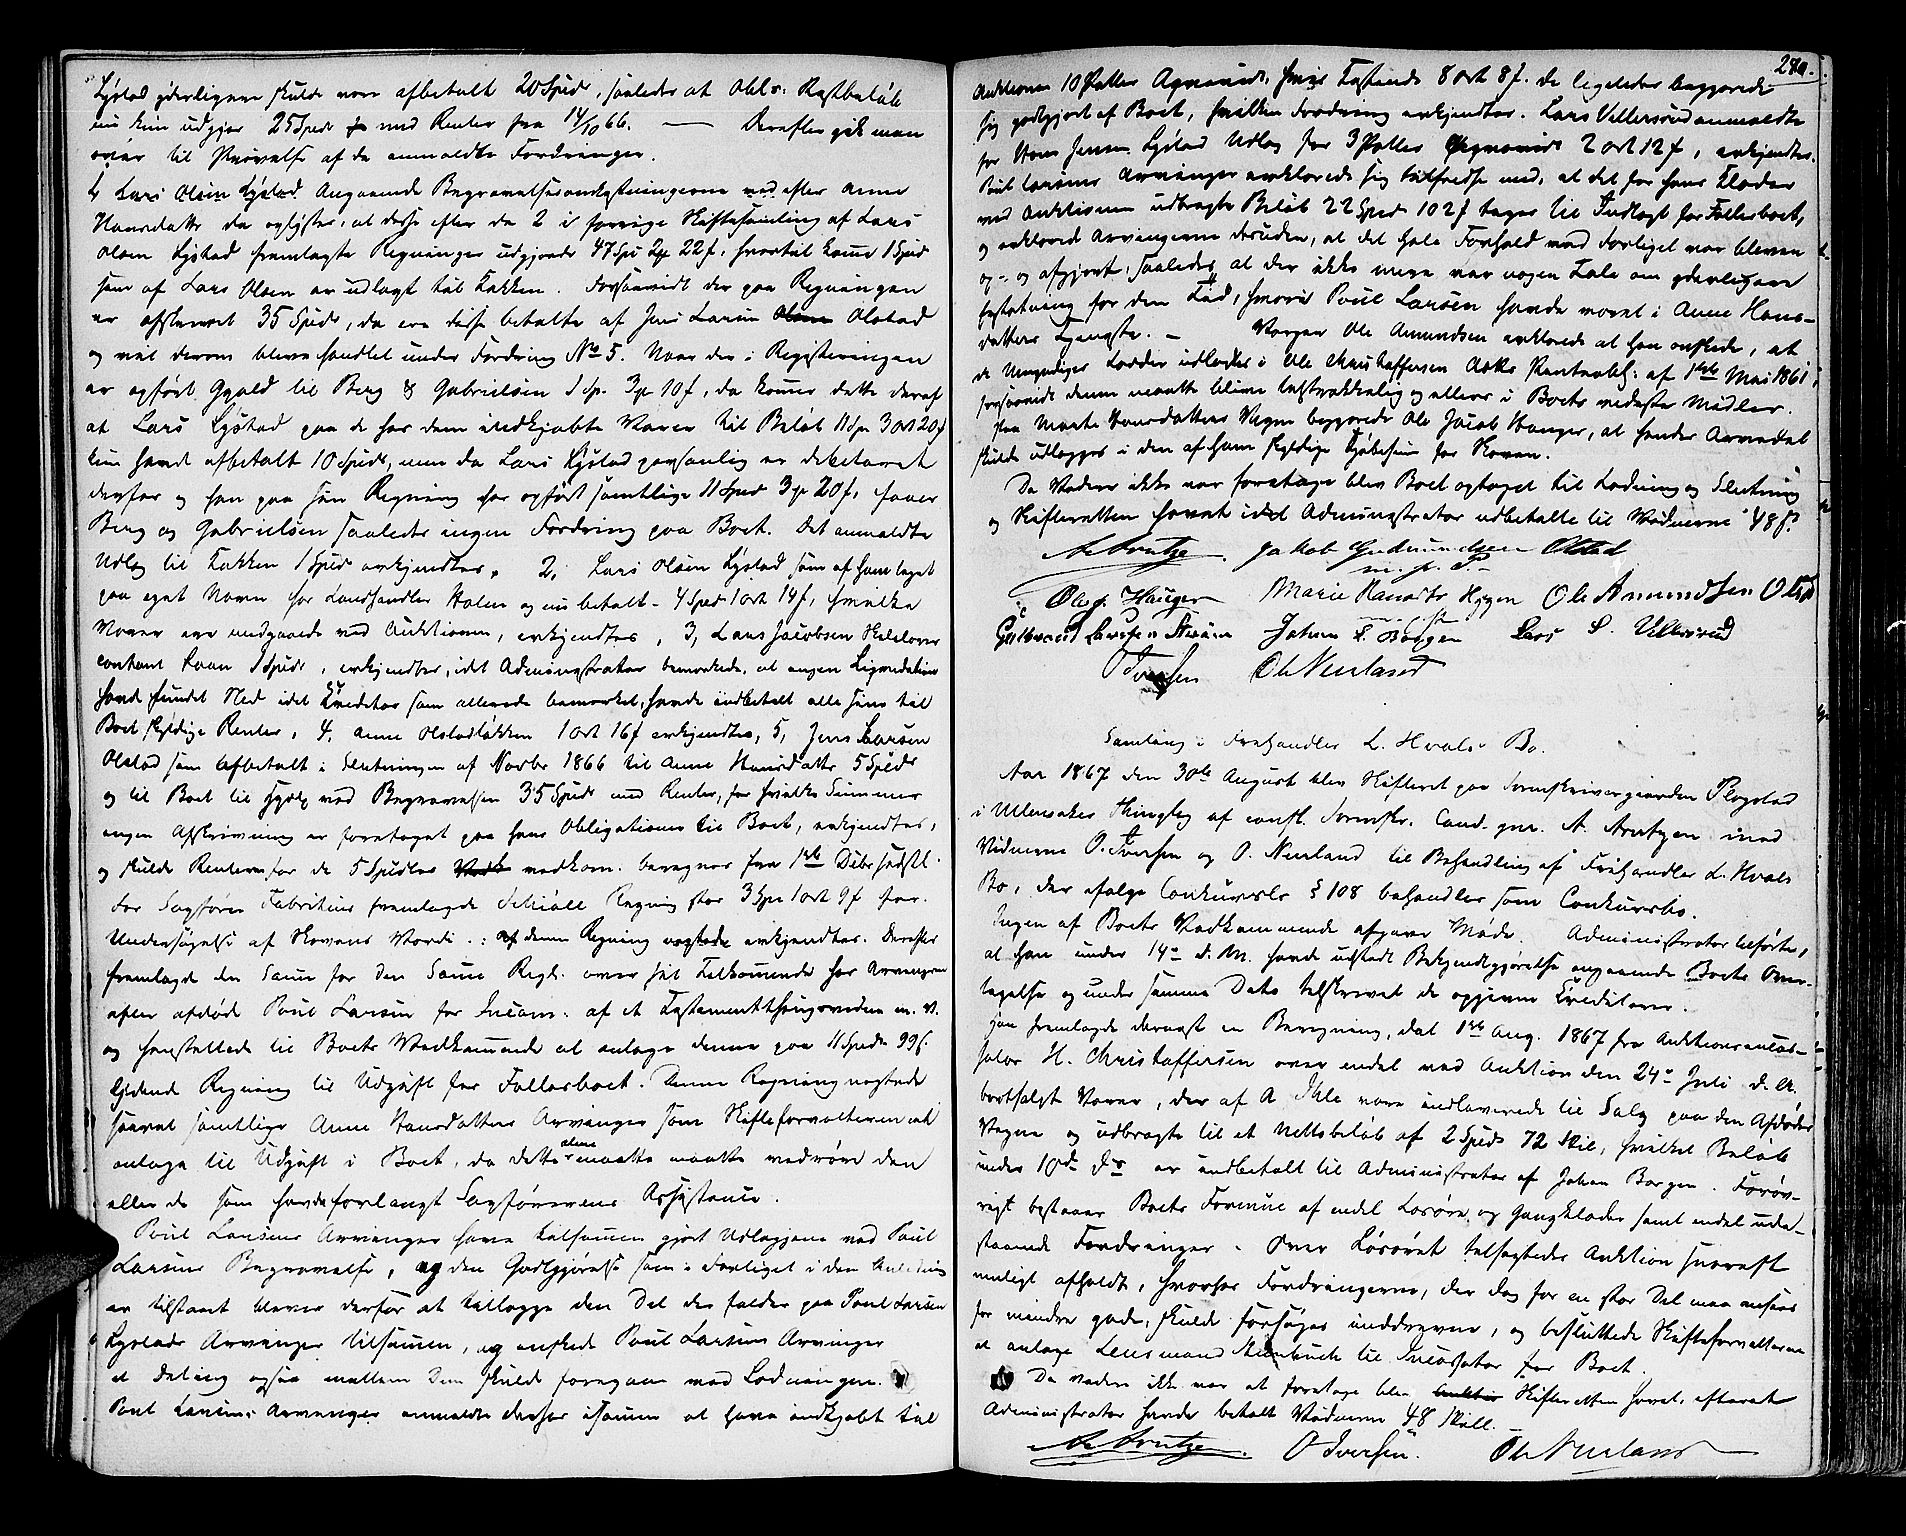 Lystad yderligere skulde være afbetalt 20 Spds, saaledes at Obl.s Restbeløb
nu kun udgjør 25 Spds med Renter fra 14/10 66. — Derefter gik man
over til Prøvelse af de anmeldte Fordringer.
1, Lars Olsen Lystad. Angaaende Begravelsesomkostningerne efter Anne
Hansdatter da oplystes, at disse efter de 2 i forrige Skiftesamling af Lars
Olsen Lystad fremlagte Regninger udgjorde 47 Spd 2 22 s, hvortil kommer 1 Spd
som af Lars Olsen er udlagt til Kokken. Forsaavidt der paa Regningen
er afskrevet 35 Spds, da ere disse betalte af Jens Larsen Olstad
og vil derom blive handlet under Fordring No 5. Naar der i Registreringen
er opført Gjæld til Berg & Gabrielsen 1 Sp. 3 10 s, da kommer dette deraf
at Lars Lystad paa de hos dem indkjøbte Varer til Beløb 11 Spd 3 ort 20 s
kun havde afbetalt 10 Spds, men da Lars Lystad personlig er debiteret
derfor og han paa sin Regning har opført samtlige 11 Spd 3 20 s, haver
Berg og Gabrielsen saaledes ingen Fordring paa Boet. Det anmeldte
Udlæg til Kokken 1 Spd erkjendtes. 2, Lars Olsen Lystad som af ham taget
paa eget Navn hos Landhandler Holm og nu betalt 4 Spd 1 ort 14 s, hvilke
Varer ere medgaaede ved Auktionen, erkjendtes, 3, Lars Jacobsen
contant Laan 1 Spds, erkjendtes, idet Administrator bemærkede, at ingen Liqvidation
havde fundet Sted idet Creditor som allerede bemærket, havde indbetalt alle sine til
Boet skyldige Renter, 4, Anne Olstadløkken 1 ort 16 s erkjendtes, 5, Jens Larsen
Olstad som afbetalt i Slutningen af Novbr 1866 til Anne Hansdatter 5 Spds
og til Boet til Hjelp ved Begravelsen 35 Spds med Renter, for hvilke Summer
ingen Afskrivning er foretaget paa hans Obligation til Boet, erkjendtes,
og skulde Renterne for de 5 Spdlr vedkom. beregnes fra 1ste Debr sidstl.
For Sagfører Fabritius fremlagde Schiøll Regning stor 3 Spd 1 ort 9 s for
Undersøgelse af Skovens Værdi. denne Regning erkjendtes. Derefter
fremlagde den Samme for den Samme Regn. over sit Tilkommende hos Arvingerne
efter afdøde Poul Larsen for Incam. af et Testamentthingsvidne m. v.
og henstillede til Boets Vedkommende at antage denne paa 11 Spd 99 s.
lydende Regning til Udgift for Fællesboet. Denne Regning nægtede
saavel samtlige Anne Hansdatters Arvinger som Skifteforvalteren at
antage til Udgift i Boet, da dette alene maatte vedrøre den
eller de som havde forlangt Sagførerens Assistance.
Poul Larsens Arvinger have tilsammen gjort Udlæggene ved Poul
Larsens Begravelse, og den Godtgjørelse som i Forliget i den Anledning
er tilstaaet bliver derfor at tillægge den Del der falder paa Poul Larsen
Lystads Arvinger tilsammen, og ønskede Poul Larsens Arvinger
at Deling ogsaa mellem dem skulde foregaae med Lodningen.
Poul Larsens Arvinger anmeldte derhos isammen at have indkjøbt til
280.
Auktionen 10 Potter Aqvavit, hvis Kostende 8 ort 8 s. de ligeledes begjærede
sig godtgjort af Boet, hvilken Fordring erkjendtes. Lars Vellersrud anmeldte
for Hans Jensen Lystad Udlæg for 3 Potter Aqvavit 2 ort 12 s, erkjendtes.
Poul Larsens Arvinger erklærede sig tilfredse med, at det for hans Klæder
ved Auktionen udbragte Beløb 22 Spd 102 s tages til Indtægt for Fællesboet,
og erklærede Arvingerne desuden, at det hele Forhold med Forliget var bleven
op- og afgjort, saaledes at der ikke mere var nogen Tale om yderligere
Erstatning for den Tid, hvori Poul Larsen havde været i Anne Hans-
datters Tjeneste. — Værgen Ole Amundsen erklærede at han ønskede, at
de Umyndiges Lodder udlodes i Ole Christoffersen Asks Pantobl. af 1ste Mai 1861,
forsaavidt denne maatte blive tilstrækkelig og ellers i Boets redeste Midler.
Paa Marte Hansdatters Vegne begjærede Ole Jacob Hauger, at hendes Arvedel
skulde udlægges i den af ham skyldige Kjøbesum for Skoven.
Da Videre ikke var foretage blev Boet optaget til Lodning og Slutning
og Skifteretten hævet idet Administrator udbetalte til Vidnerne 48 s.
A. Arntzen. Jakob Gudmundsen Olstad
m. p. P.
Ole J. Hauger Marie Hansdtr Hagen Ole Amundsen Olstad
m. f. P.
Gulbrand Larsen Johan L. Borgen Lars L. Vellersrud
O Iversen Ole Neuland
Samling i Frihandler L. Hvals Bo.
Aar 1867 den 30te August blev Skifteret paa Sorenskrivergaarden Plogstad
i Ullensakers Thinglag af const. Sorenskr. Cand. jur. A. Arntzen med
Vidnerne O. Iversen og O. Neuland til Behandling af Frihandler L. Hvals
Bo, der ifølge Conkursl. § 108 behandles som Conkursbo.
Ingen af Boets Vedkommende afgave Møde. Administrator tilførte,
at han under 14de d. M. havde udstedt Bekjendtgjørelse angaaende Boets Over-
tagelse og under samme Dato tilskrevet de opgivne Creditorer.
Han fremlagde dernæst en Beregning, dat 1ste Aug. 1867 fra Auktionsincas-
sator H. Christoffersen over endel ved Auktion den 24de Juli d. A.
bortsolgte Varer, der af A Ihle vare indleverede til Salg paa den Afdødes
Vegne og udbragte til et Nettobeløb af 2 Spds 72 Skil, hvilket Beløb
under 10de ds er indbetalt til Administrator af Johan Borgen. Forøv-
rigt bestaaer Boets Formue af endel Løsøre og Gangklæder samt endel ude-
staaende Fordringer. Over Løsøret tilsagtes Auktion snarest
muligt afholdt, hvorhos Fordringerne, der dog for en stor Del maa ansees
for mindre gode, skulde forsøges inddrevne, og besluttede Skifteforvalteren
at antage Lensmand til Incassator for Boet.
Da videre ikke var at foretage blev Skifteretten hævet, efterat
Administrator havde betalt Vidnerne 48 Skill.
A. Arntzen. O Iversen. Ole Neuland